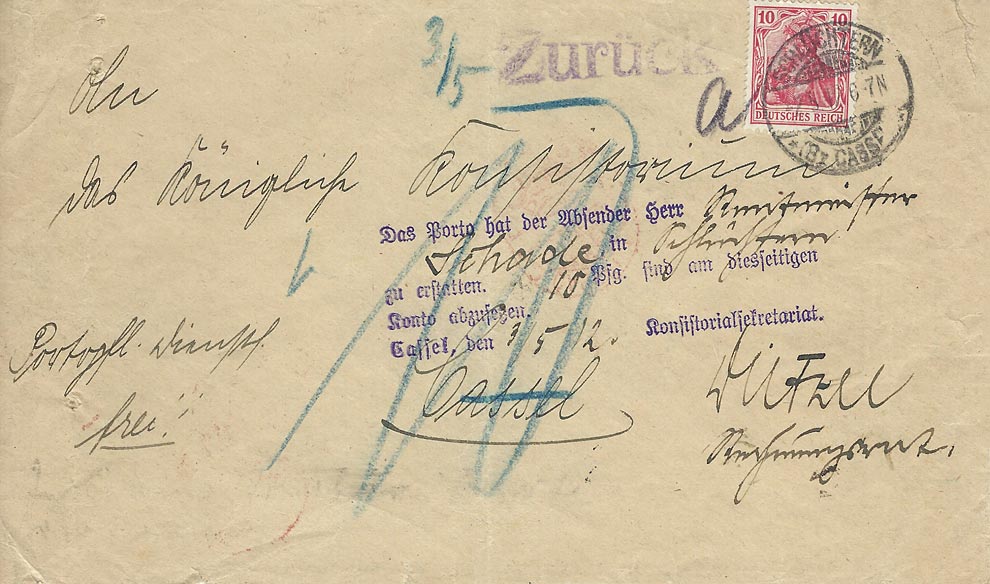 3/5
Zurück
10 10
DEUTSCHES REICH
SCHLÜCHTERN
6.7N
*(Bz. CASSEL)*
a
An
das Königliche Konsistorium
Das Porto hat der Absender Herr Rentmeister
Schade in Schlüchtern
zu erstatten. 10 Pfg. sind am diesseitigen
Konto abzusetzen.
Cassel, den 3/5 12. Konsistorialsekretariat.
Portopfl. Diensts.
frei!
Cassel
Witzel
Rechnungsrat.
10